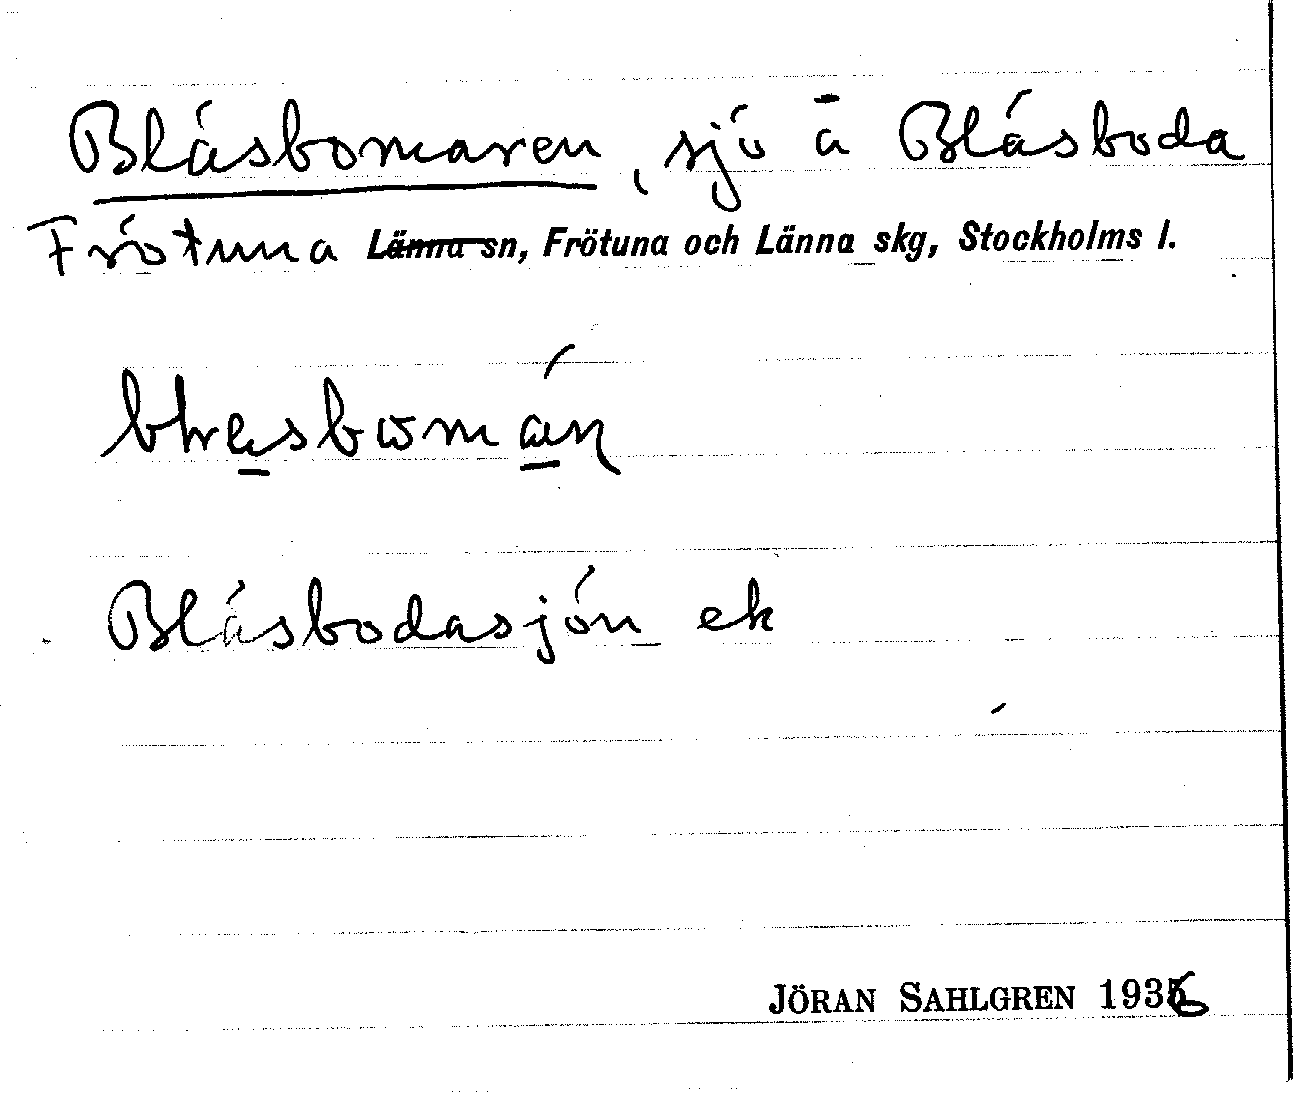 Blåsbomaren, sjö å Blåsboda
Frötuna Länna sn, Frötuna och Länna skg, Stockholms l.
Blåsbodasjön ek
JÖRAN SAHLGREN 1936